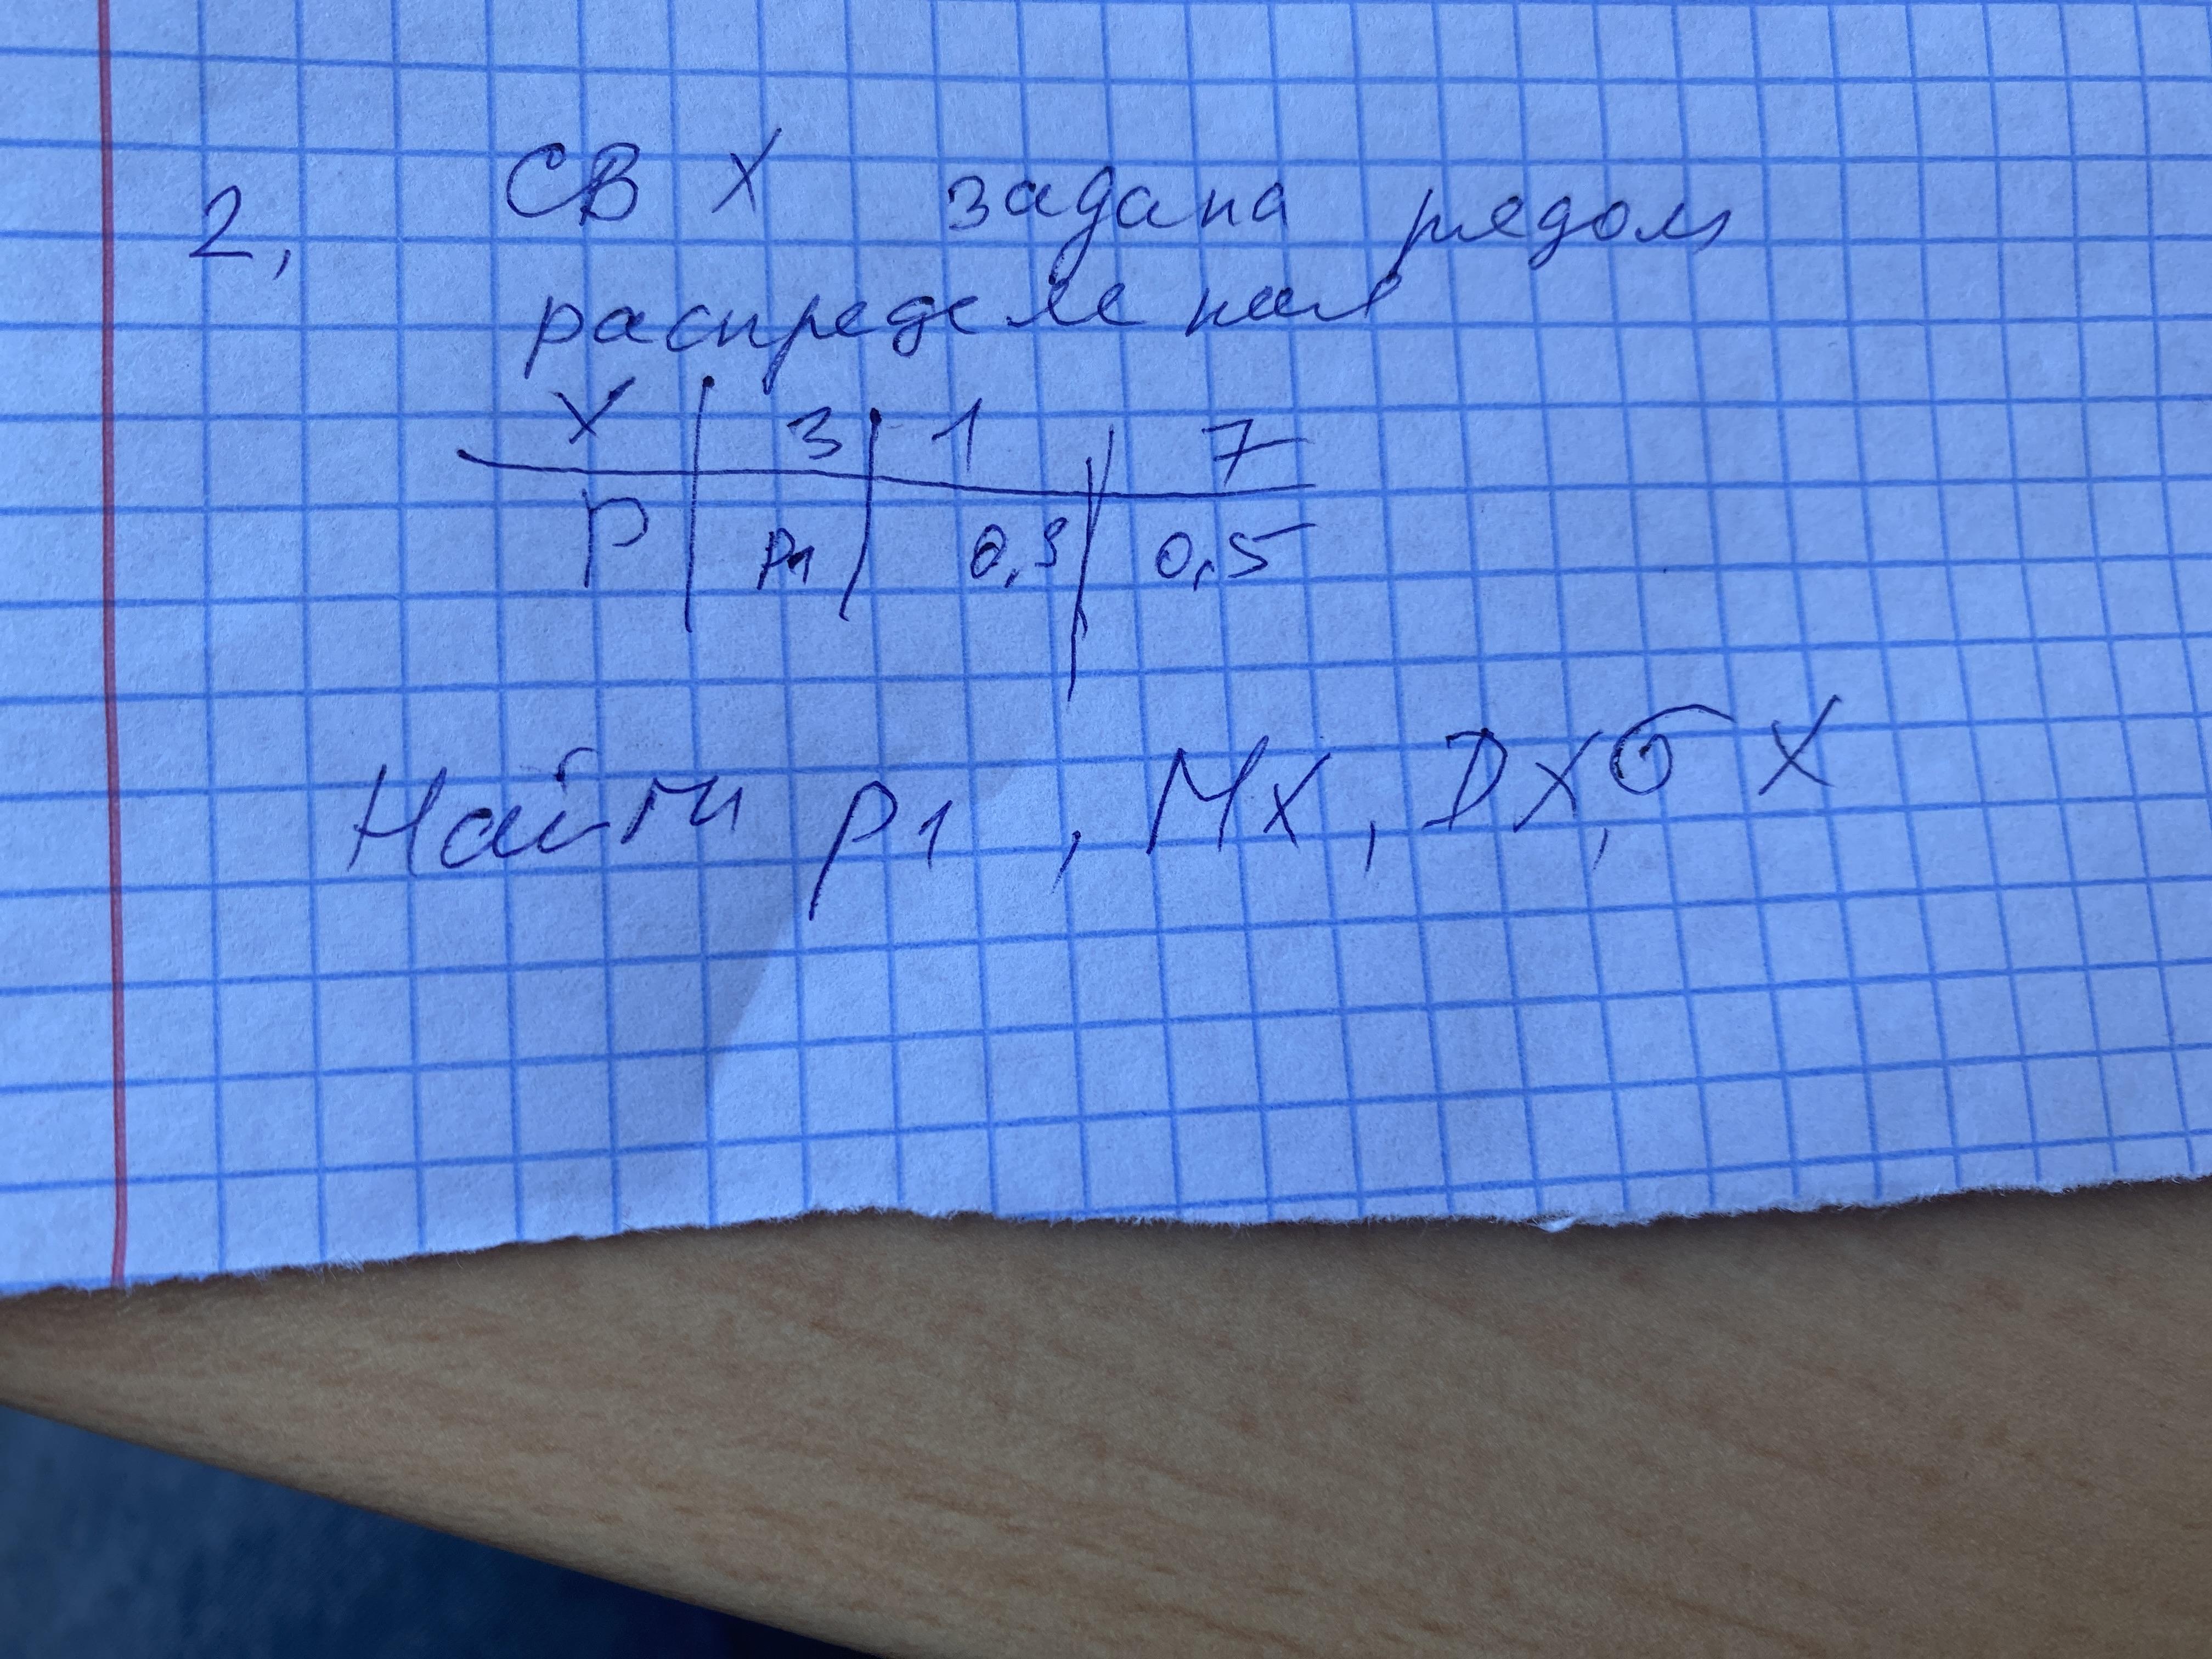 2, СВ X задана рядом
распределения
X | 3 | 1 | 7
P | p1 | 0,3 | 0,5
Найти p1, MX, DX, σX